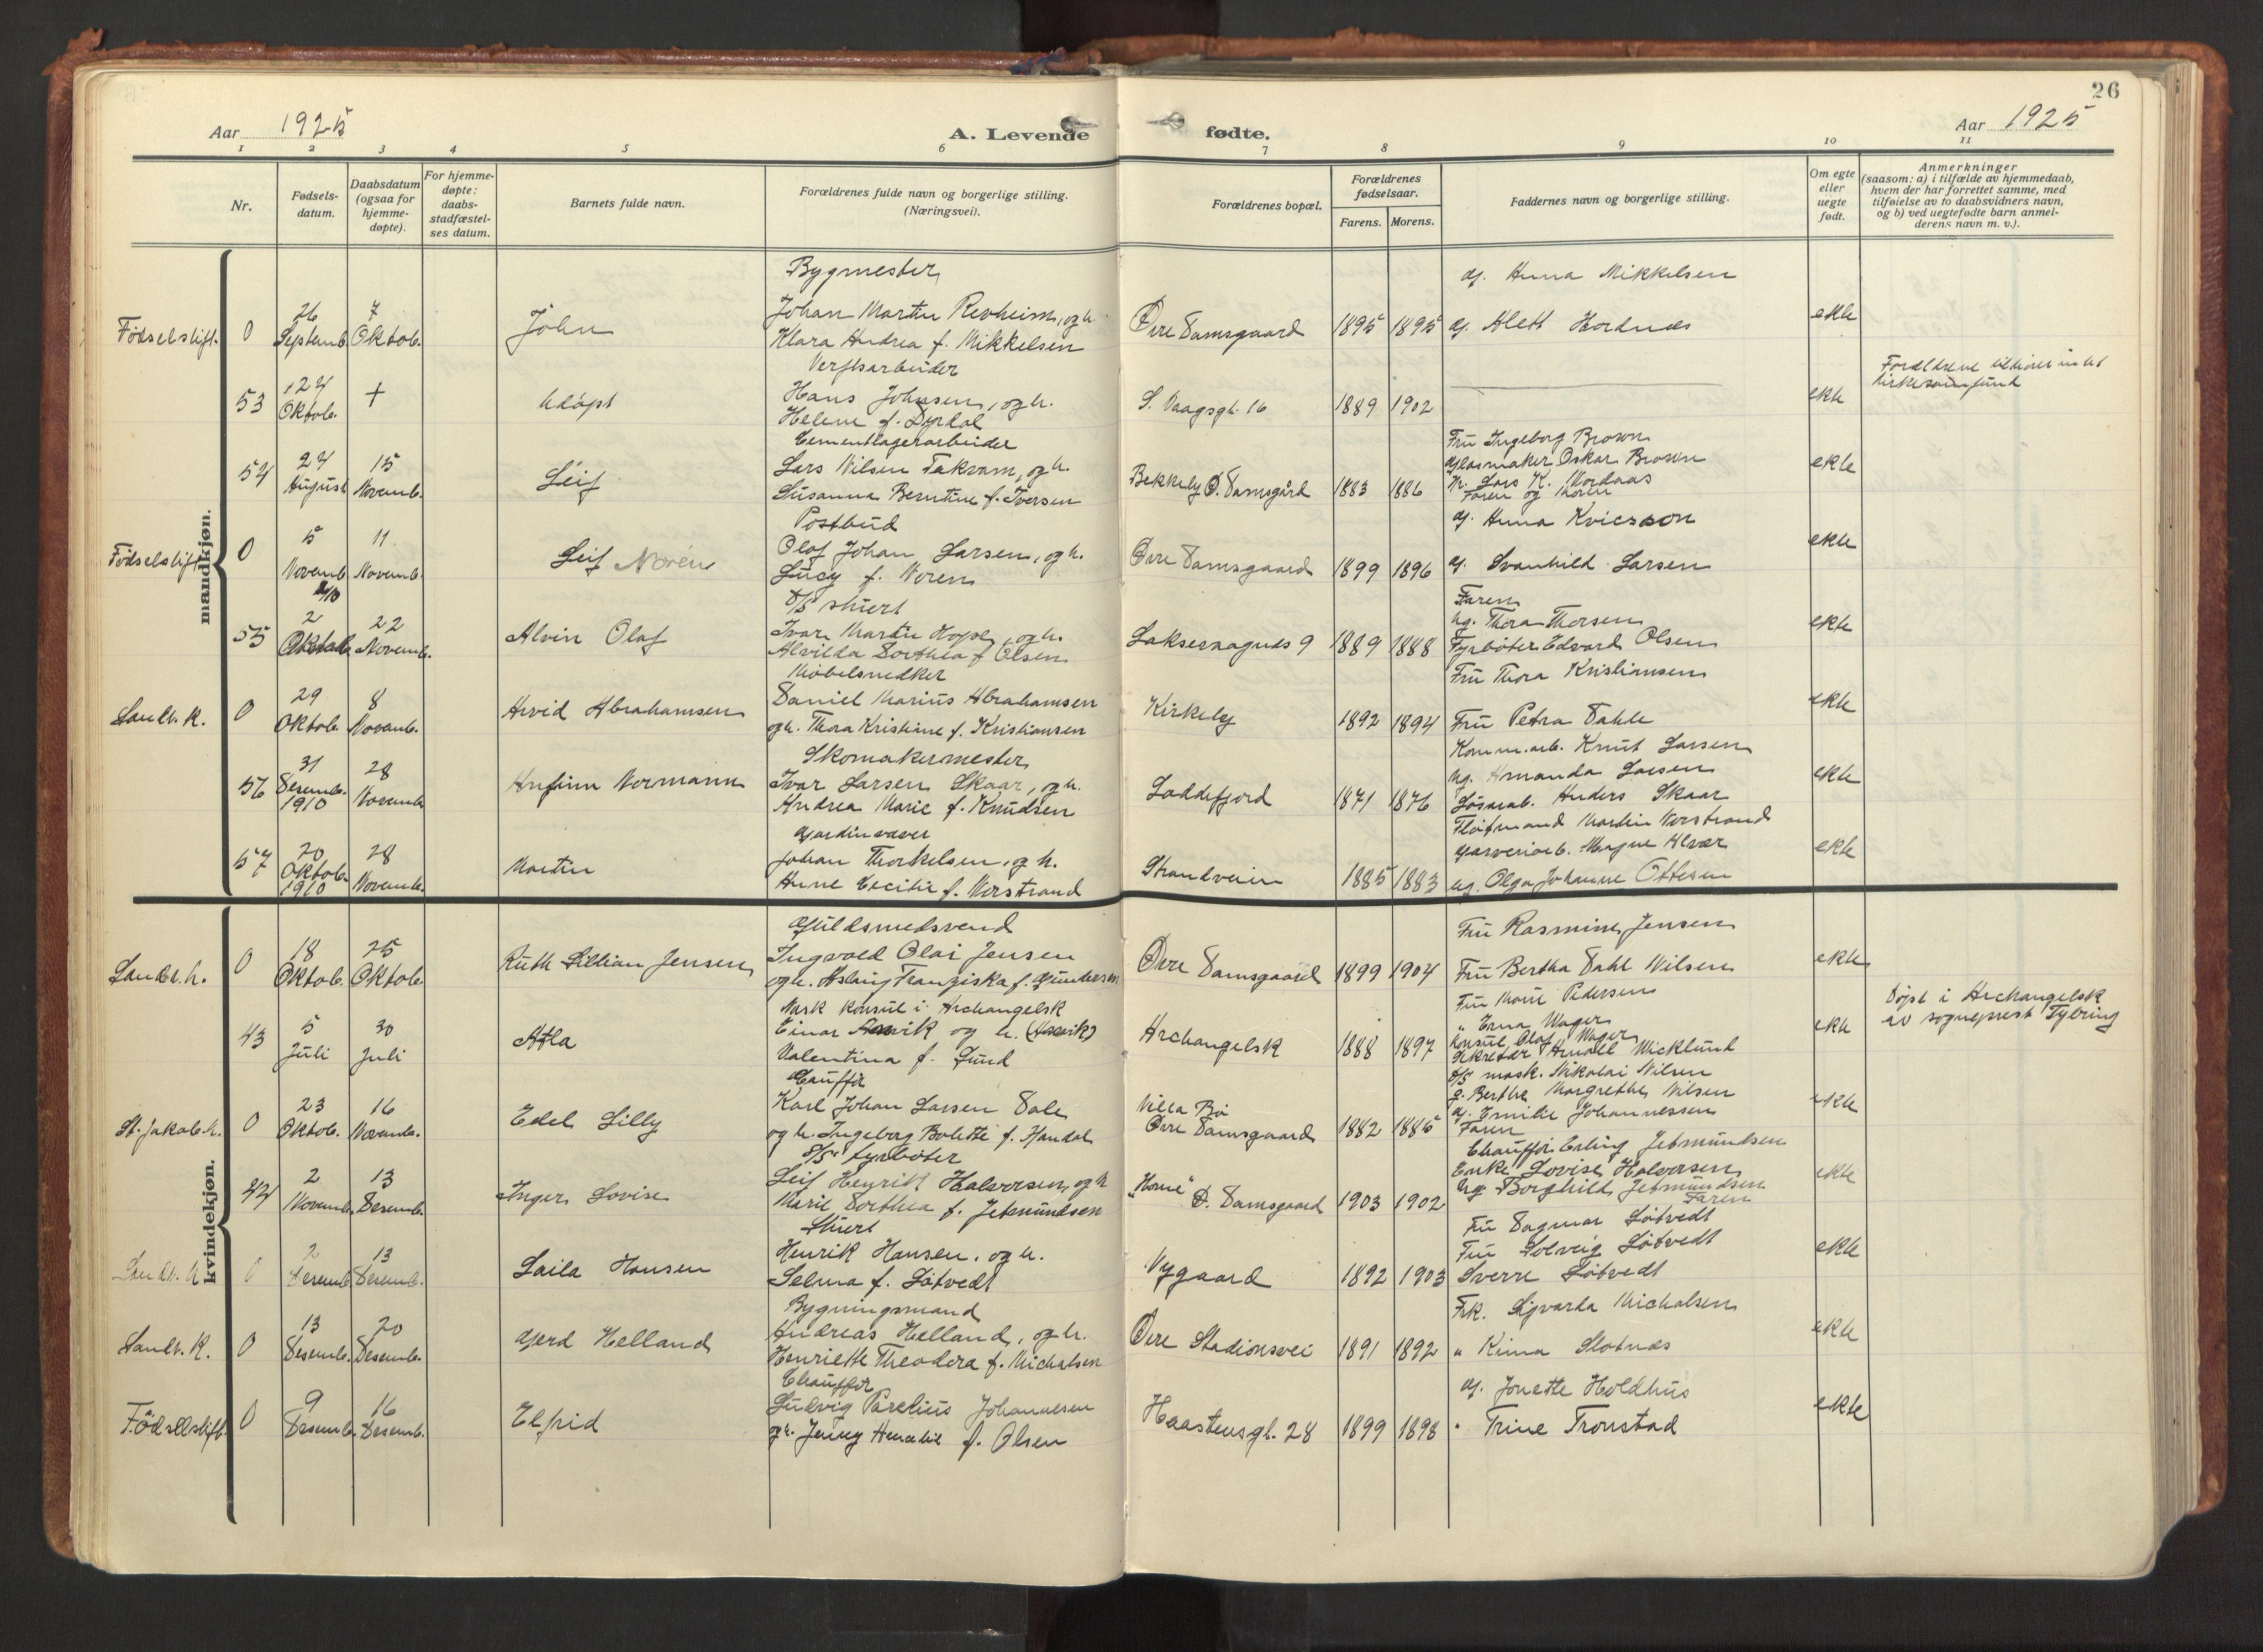 26
Aar 1925
A. Levende fødte.
Aar 1925
1 2 3 4 5 6 7 8 9 10 11
Nr.
Fødsels-
datum.
Daabsdatum
(ogsaa for
hjemme-
døpte).
For hjemme-
døpte:
daabs-
stadfæstel-
ses datum.
Barnets fulde navn.
Forældrenes fulde navn og borgerlige stilling.
(Næringsvei).
Forældrenes bopæl.
Forældrenes
fødselsaar.
Farens. Morens.
Faddernes navn og borgerlige stilling.
Om egte
eller
uegte
født.
Anmerkninger
(saasom: a) i tilfælde av hjemmedaab,
hvem der har forrettet samme, med
tilføielse av to daabsvidners navn,
og b) ved uegtefødte barn anmel-
derens navn m. v.).
mandkjøn.
Fødselstift. 0
26 Septemb.
7 Oktob.
John
Bygmester
Johan Martin Revheim, og h.
Klara Andrea f. Mikkelsen
Øvre Damsgaard
1895 1895
Anna Mikkelsen
Alett Hordnes
ekte
53
24 Oktob.
+
Udøpt
Verftsarbeider
Hans Johnsen, og h.
Helene f. Dyrdal
S. Vaagsgt. 16
1889 1902
ekte
Forældrene tilhører intet
kirkesamfund
54
24 August
15 Novemb.
Leif
Cementlagerarbeider
Lars Nilsen Takvam, og h.
Susanna Berntine f. Iversen
Bekkely Ø. Damsgård
1883 1886
Fru Ingeborg Brown
Glasmaker Oskar Brown
Lars K. Nordaas
Faren og Moren
ekte
Fødselstift. 0
5 Novemb.
11 Novemb.
Leif Norén
Postbud
Olaf Johan Larsen, og h.
Lucy f. Noren
Øvre Damsgaard
1899 1896
Anna Kvicsson
Svanhild Larsen
ekte
55
2 Oktob.
22 Novemb.
Alvin Olaf
D/S stuert
Ivar Martin Hope, og h.
Alvilda Dorthea f. Olsen
Laksevaagnes 9
1889 1888
Faren
Ug. Thora Thorsen
Fyrbøter Edvard Olsen
ekte
Sandv. K. 0
29 Oktob.
8 Novemb.
Arvid Abrahamsen
Møbelsnedker
Daniel Marius Abrahamsen
og h. Thora Kristiane f. Kristiansen
Kirkely
1892 1894
Fru Thora Kristiansen
Fru Petra Dahle
ekte
56
31 Desemb. 1910
28 Novemb.
Arnfinn Normann
Skomakermester
Ivar Larsen Skaar, og h.
Andrea Marie f. Knudsen
Loddefjord
1871 1876
Komm.arb. Knut Larsen
Ug. Amanda Larsen
Løsarb. Anders Skaar
ekte
57
20 Oktob. 1910
28 Novemb.
Martin
Gardinvæver
Johan Thorkelsen, og h.
Anne Cecilie f. Verstrand
Strandveien
1885 1883
Fløtmand Martin Verstrand
Garveriarb. Magne Alvær
ug. Olga Johanne Ottesen
ekte
kvindekjøn.
Sandv. k. 0
18 Oktob.
25 Oktob.
Ruth Lillian Jensen
Guldsmedsvend
Ingvald Olai Jensen
og h. Aslaug Franziska f. Gundersen
Øvre Damsgaard
1899 1904
Fru Rasmine Jensen
Fru Bertha Dahl Nilsen
ekte
43
5 Juli
30 Juli
Atla
Norsk konsul i Archangelsk
Einar Anvik og h.
Valentina f. Lund
Archangelsk
1888 1897
Fru Marie Pedersen
" Erna Wager
Konsul Olaf Wager
Sekretær Arnold Wicklund
ekte
Døpt i Archangelsk
av sogneprest Fyling
St. Jakob k. 0
23 Oktob.
16 Novemb.
Edel Lilly
Chauffør
Karl Johan Larsen Dale
og h. Ingeborg Bolette f. Handal
Villa Bø
Øvre Damsgaard
1882 1885
D/S mask. Nikolai Nilsen
g. Berthe Margrethe Nilsen
g. Emilie Johannessen
Faren
ekte
44
2 Novemb.
13 Desemb.
Inger Lovise
D/S fyrbøter
Leif Henrik Halvorsen, og h.
Marie Dorthea f. Jetmundsen
"Home" Ø. Damsgaard
1903 1902
Chauffør Erling Jetmundsen
Enke Lovise Halvorsen
Ug. Borghild Jetmundsen
Faren
ekte
Sandv. k. 0
2 Desemb.
13 Desemb.
Laila Hansen
Stuert
Henrik Hansen, og h.
Selma f.Løtvedt
Nygaard
1892 1903
Fru Dagmar Løtvedt
Fru Solveig Løtvedt
Sverre Løtvedt
ekte
Sandv. K. 0
13 Desemb.
20 Desemb.
Gjerd Helland
Bygningsmand
Andreas Helland, og h.
Henriette Theodora f. Michalsen
Øvre Stadionsvei
1891 1892
Frk. Sigvarda Michalsen
" Rima Slotnæs
ekte
Fødselstift. 0
9 Desemb.
16 Desemb.
Elfrid
Chauffør
Ludvig Parelius Johannesen
og h. Jenny Amalie f. Olsen
Haasteinsgt. 28
1899 1898
Jonette Holdhus
" Trine Tronstad
ekte